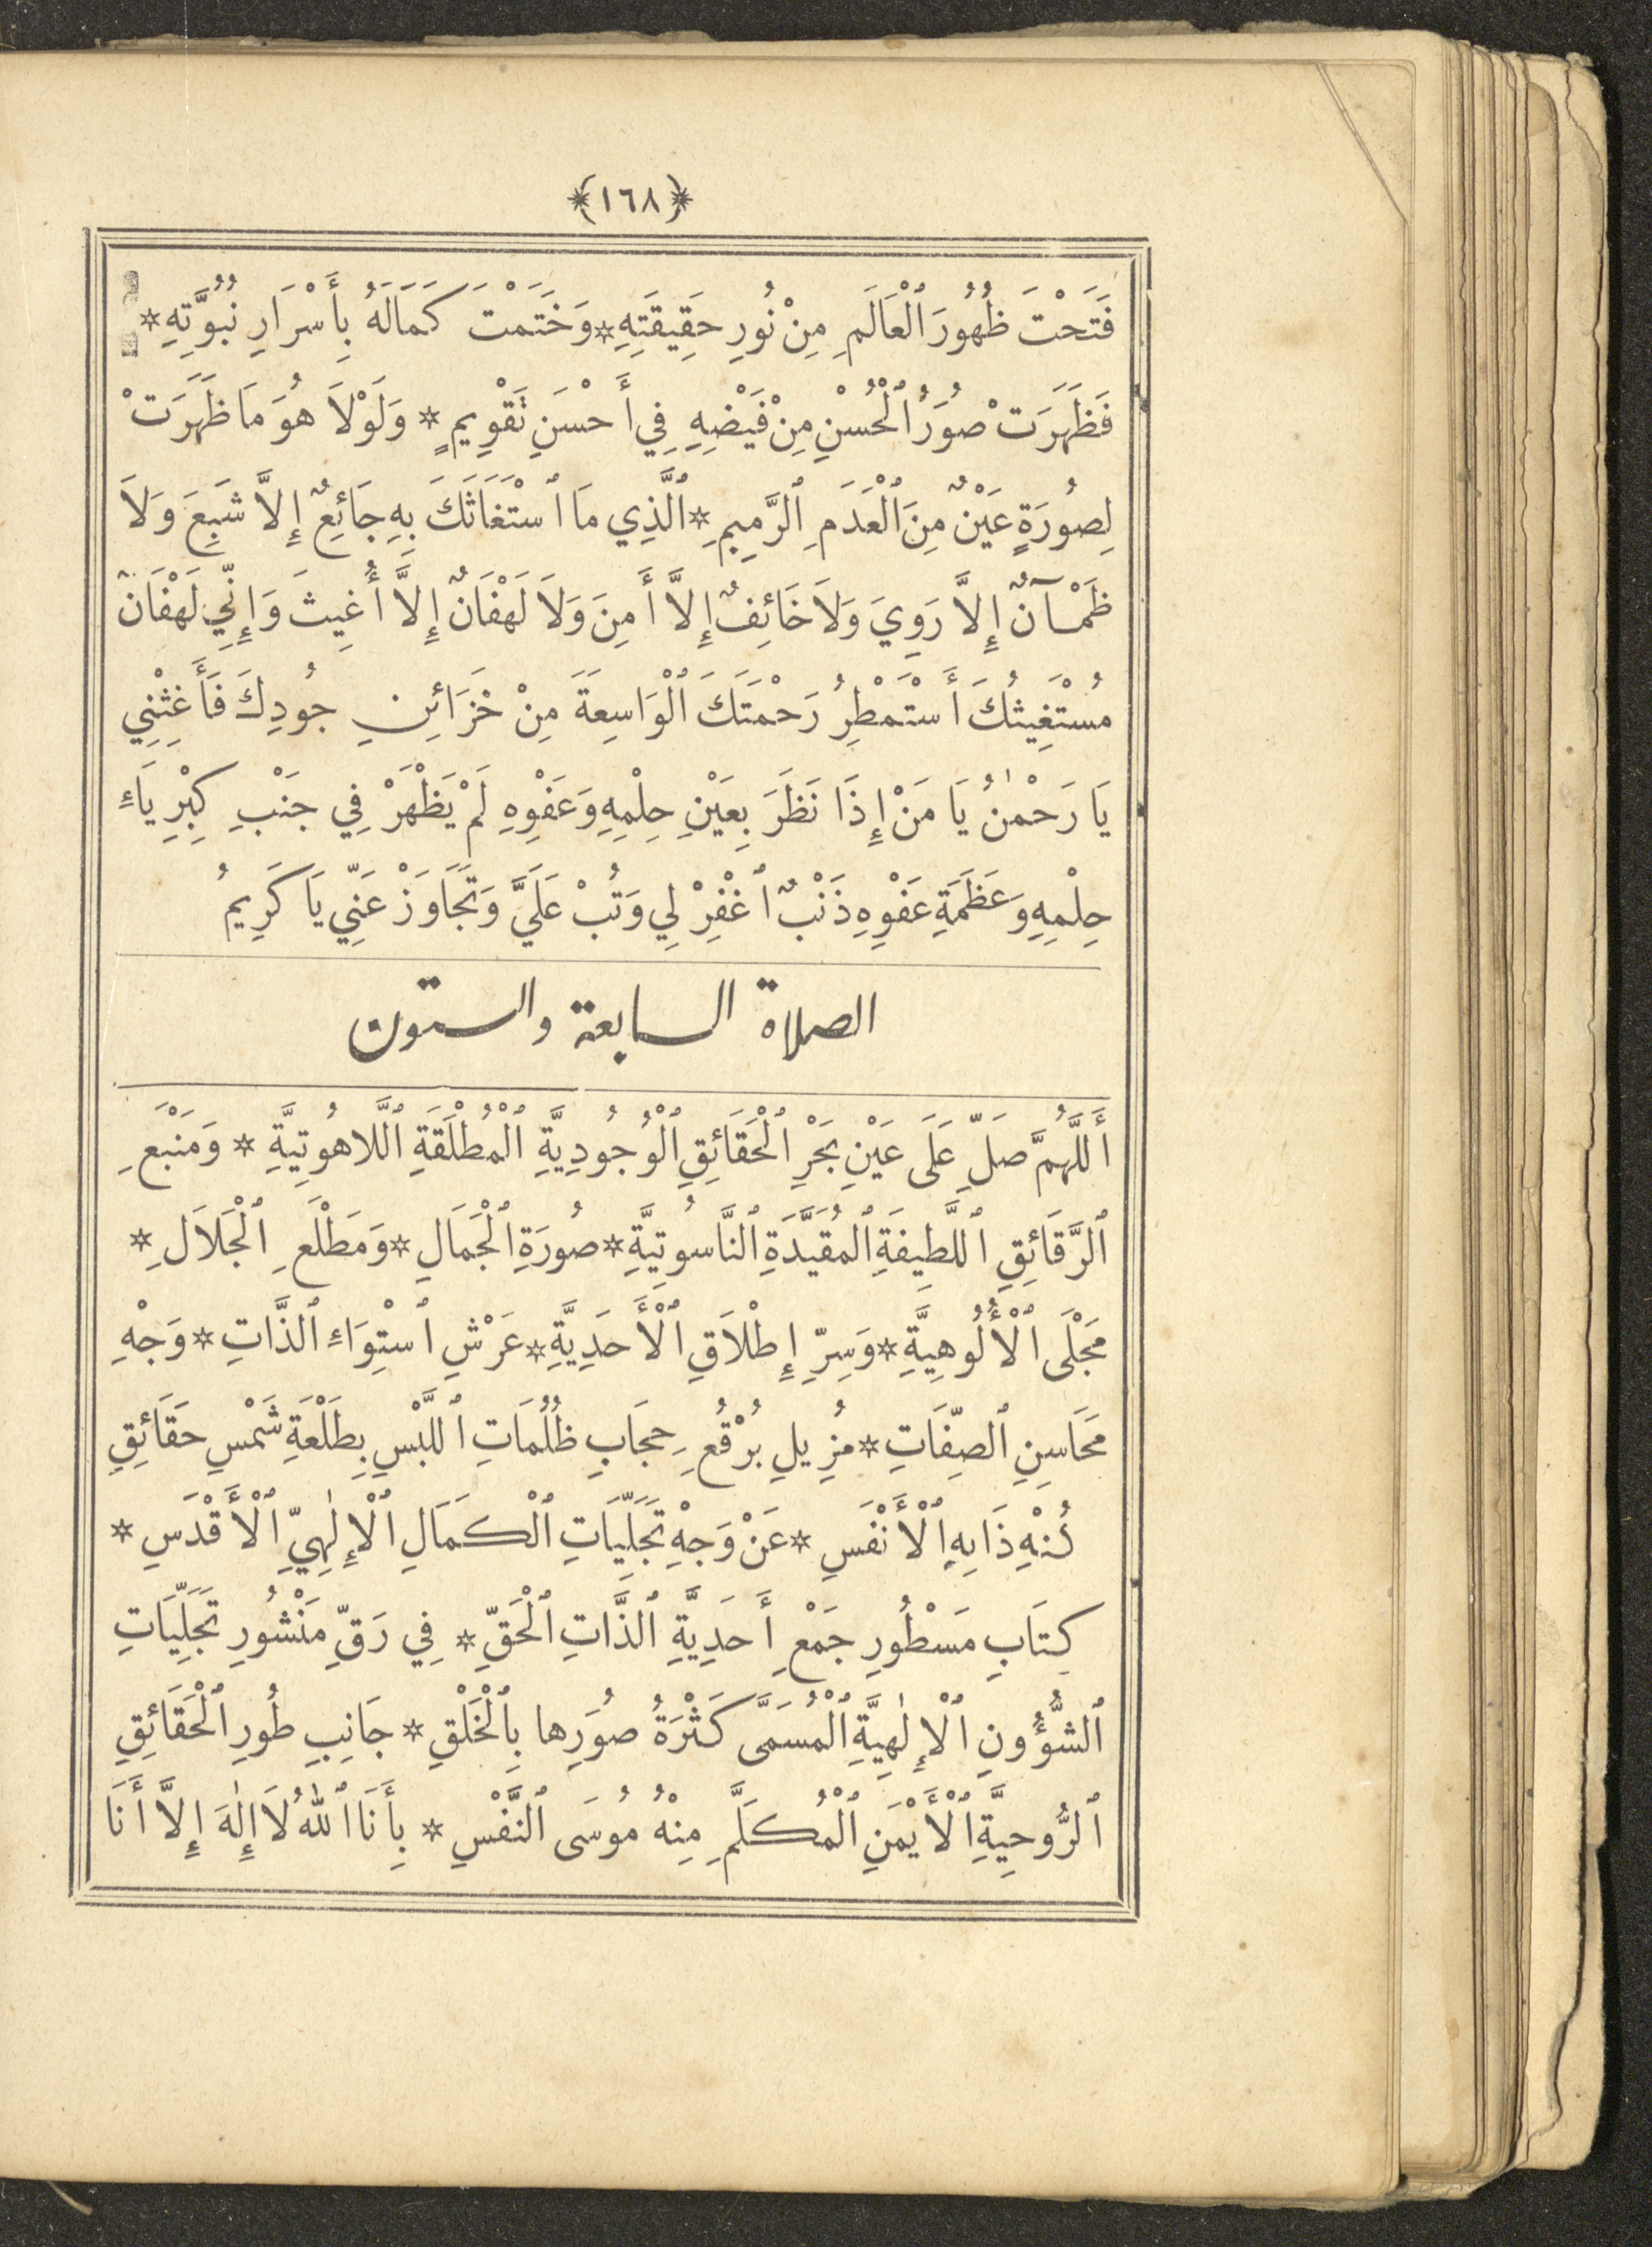 ﴿١٦٨﴾
فَتَحْتَ ظُهُورَ ٱلْعَالَمِ مِنْ نُورِ حَقِيقَتِهِ * وَخَتَمْتَ كَمَالَهُ بِأَسْرَارِ نُبُوَّتِهِ *
فَظَهَرَتْ صُوَرُ ٱلْحُسْنِ مِنْ فَيْضِهِ فِي أَحْسَنِ تَقْوِيمٍ * وَلَوْلَا هُوَ مَا ظَهَرَتْ
لِصُورَةٍ عَيْنٌ مِنَ ٱلْعَدَمِ ٱلرَّمِيمِ * ٱلَّذِي مَا ٱسْتَغَاثَكَ بِهِ جَائِعٌ إِلَّا شَبِعَ وَلَا
ظَمْآنٌ إِلَّا رَوِيَ وَلَا خَائِفٌ إِلَّا أَمِنَ وَلَا لَهْفَانٌ إِلَّا أُغِيثَ وَإِنِّي لَهْفَانٌ
مُسْتَغِيثُكَ أَسْتَمْطِرُ رَحْمَتَكَ ٱلْوَاسِعَةَ مِنْ خَزَائِنِ جُودِكَ فَأَغِثْنِي
يَا رَحْمٰنُ يَا مَنْ إِذَا نَظَرَ بِعَيْنِ حِلْمِهِ وَعَفْوِهِ لَمْ يَظْهَرْ فِي جَنْبِ كِبْرِيَاءِ
حِلْمِهِ وَعَظَمَةِ عَفْوِهِ ذَنْبٌ ٱغْفِرْ لِي وَتُبْ عَلَيَّ وَتَجَاوَزْ عَنِّي يَا كَرِيمُ
الصلاة السابعة والستون
أَللَّهُمَّ صَلِّ عَلَى عَيْنِ بَحْرِ ٱلْحَقَائِقِ ٱلْوُجُودِيَّةِ ٱلْمُطْلَقَةِ ٱللَّاهُوتِيَّةِ * وَمَنْبَعِ
ٱلرَّقَائِقِ ٱللَّطِيفَةِ ٱلْمُقَيَّدَةِ ٱلنَّاسُوتِيَّةِ * صُورَةِ ٱلْجَمَالِ * وَمَطْلَعِ ٱلْجَلَالِ *
مَجْلَى ٱلْأُلُوهِيَّةِ * وَسِرِّ إِطْلَاقِ ٱلْأَحَدِيَّةِ * عَرْشِ ٱسْتِوَاءِ ٱلذَّاتِ * وَجْهِ
مَحَاسِنِ ٱلصِّفَاتِ * مُزِيلِ بُرْقُعِ حِجَابِ ظُلُمَاتِ ٱللَّبْسِ بِطَلْعَةِ شَمْسِ حَقَائِقِ
كُنْهِ ذَاتِهِ ٱلْأَنْفَسِ * عَنْ وَجْهِ تَجَلِّيَاتِ ٱلْكَمَالِ ٱلْإِلٰهِيِّ ٱلْأَقْدَسِ *
كِتَابِ مَسْطُورِ جَمْعِ أَحَدِيَّةِ ٱلذَّاتِ ٱلْحَقِّ * فِي رَقِّ مَنْشُورِ تَجَلِّيَاتِ
ٱلشُّؤُونِ ٱلْإِلٰهِيَّةِ ٱلْمُسَمَّى كَثْرَةُ صُوَرِهَا بِٱلْخَلْقِ * جَانِبِ طُورِ ٱلْحَقَائِقِ
ٱلرُّوحِيَّةِ ٱلْأَيْمَنِ ٱلْمُكَلَّمِ مِنْهُ مُوسَى ٱلنَّفْسِ * بِأَنَا ٱللّٰهُ لَا إِلٰهَ إِلَّا أَنَا